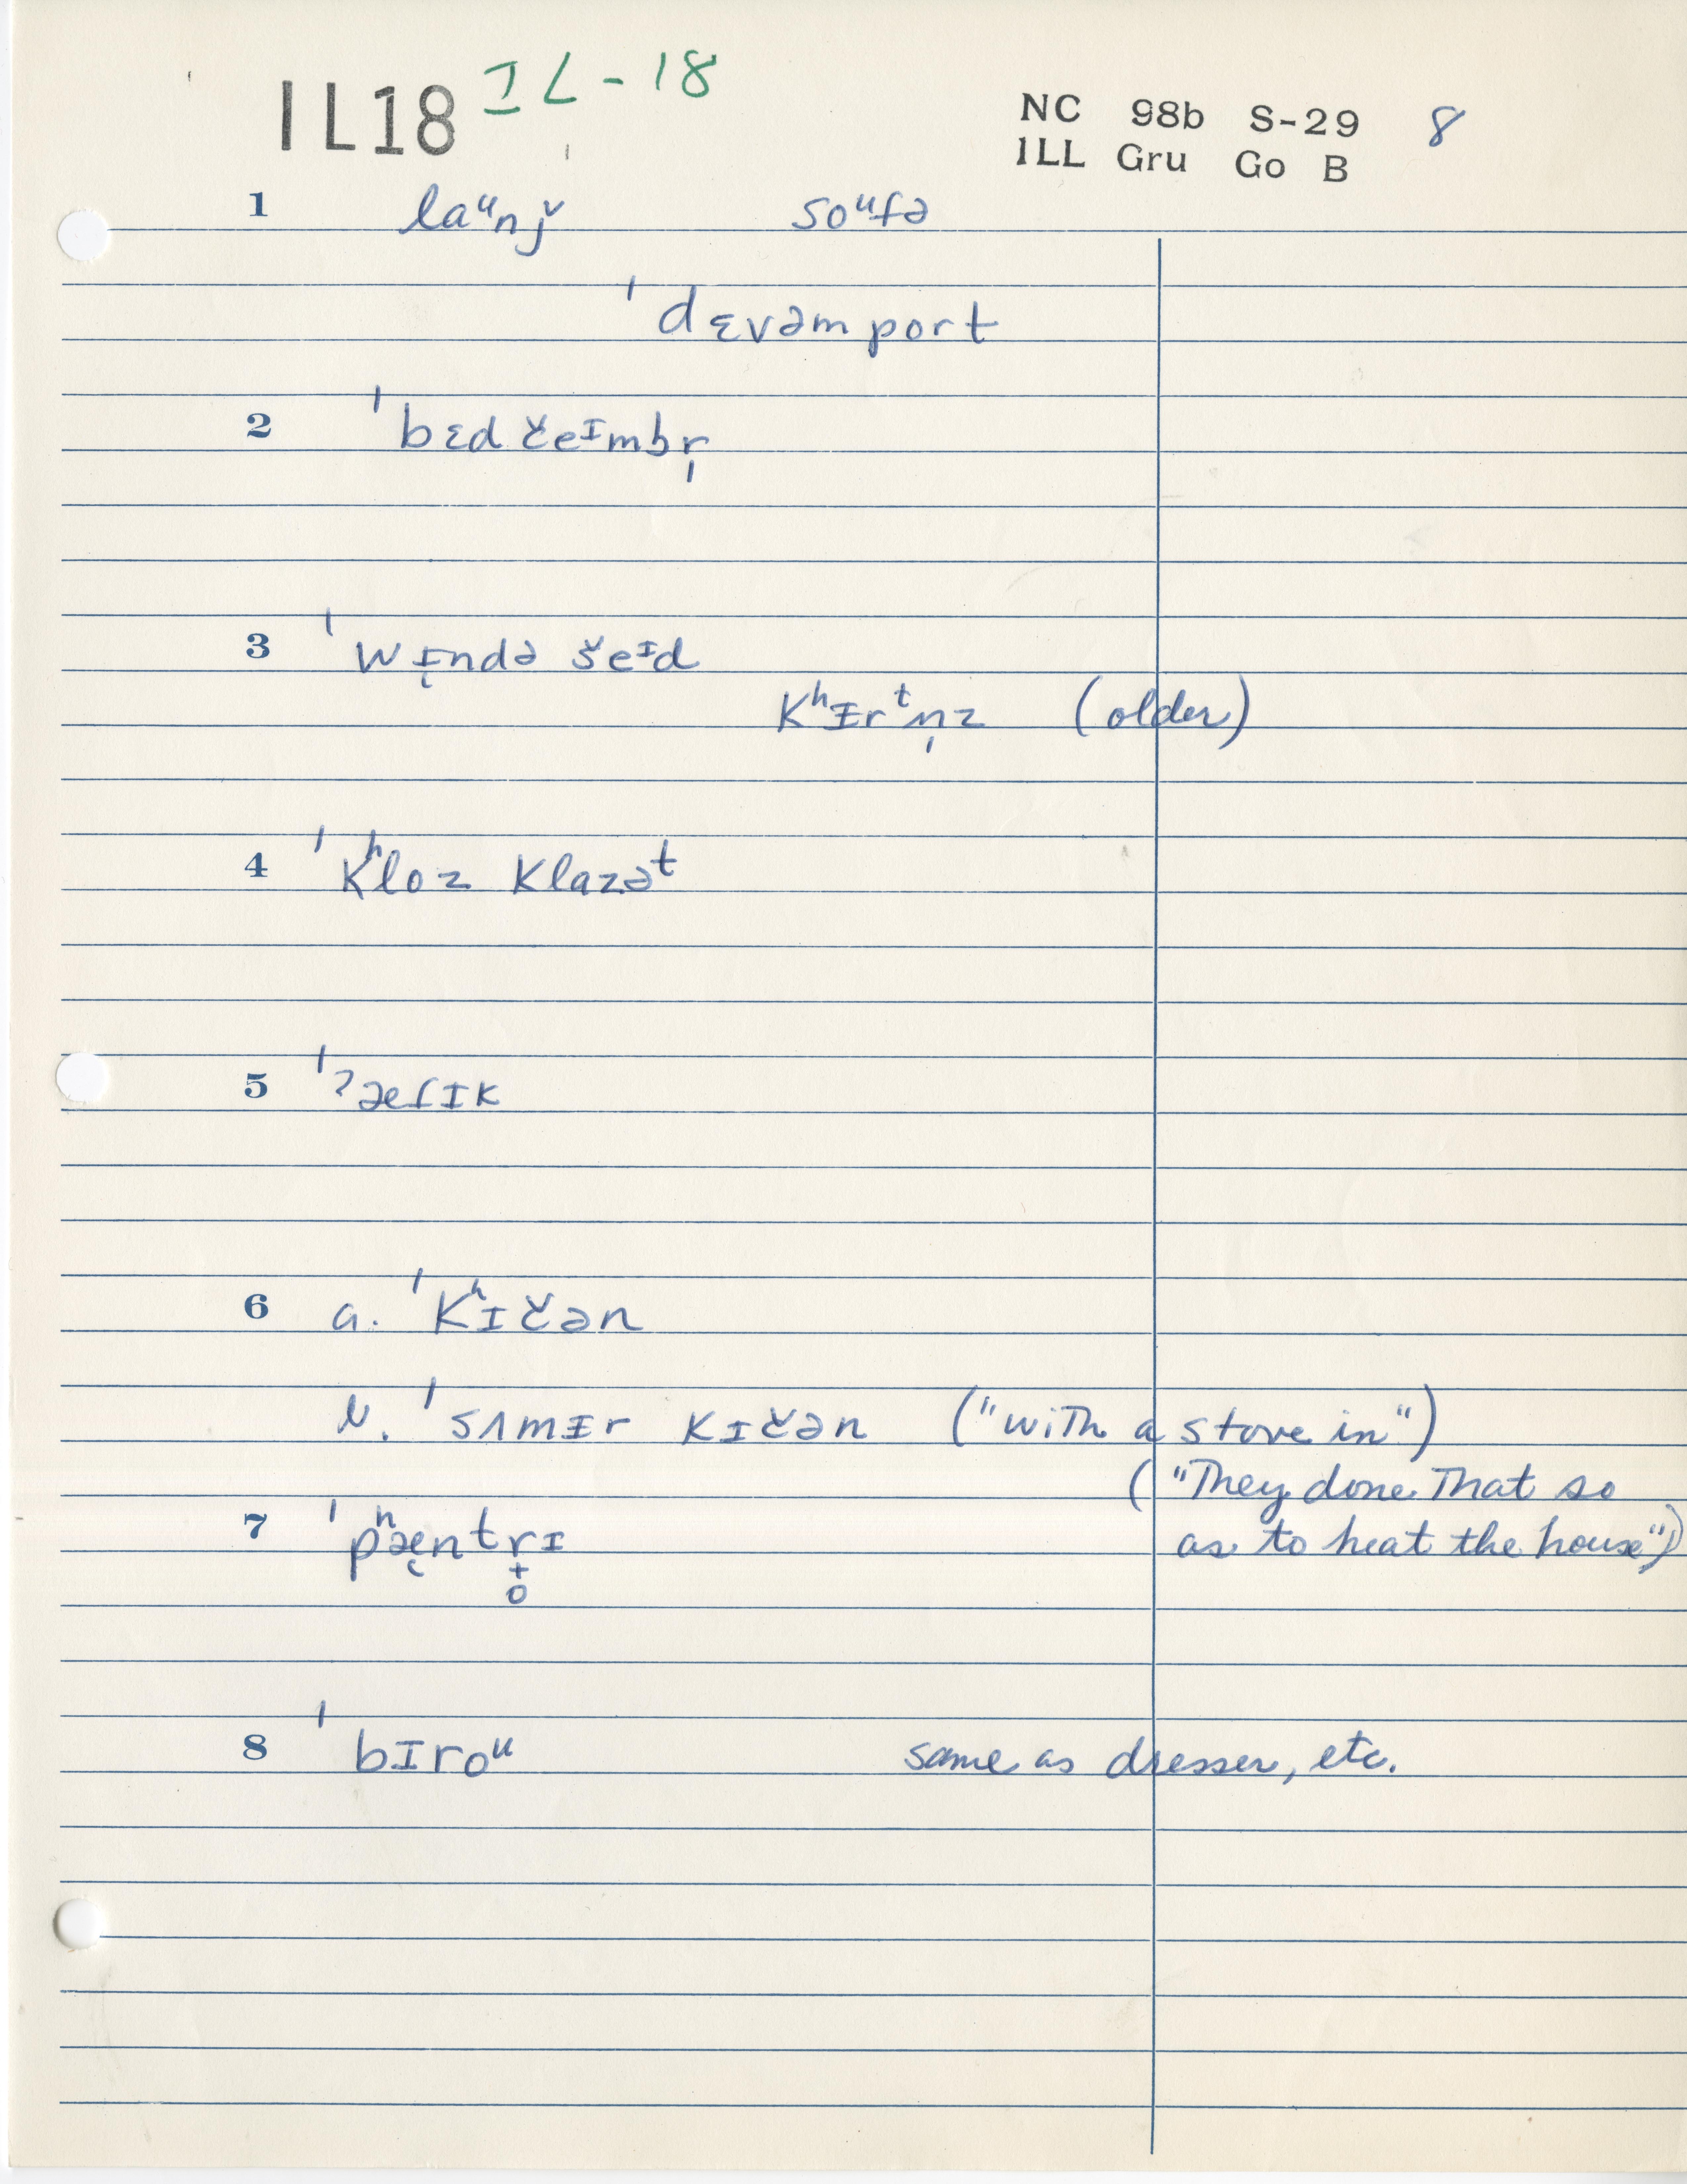 IL18 IL-18
NC 98b S-29 8
ILL Gru Go B
1 laᵘnǰ soᵘfə
ˈdɛvəmport
2 ˈbɛd čeᶦmbr̩
3 ˈwɪ̨ndə šeᶦd
kʰɪrᵗn̩z (older)
4 ˈkʰloz klazəᵗ
5 ˈʔæfɪk
6 a. ˈkʰɪčən
b. ˈsʌmɪr kɪčən ("with a stove in")
("They done that so
7 ˈpʰæ̨ntr̟̊ɪ as to heat the house")
8 ˈbɪroᵘ same as dresser, etc.